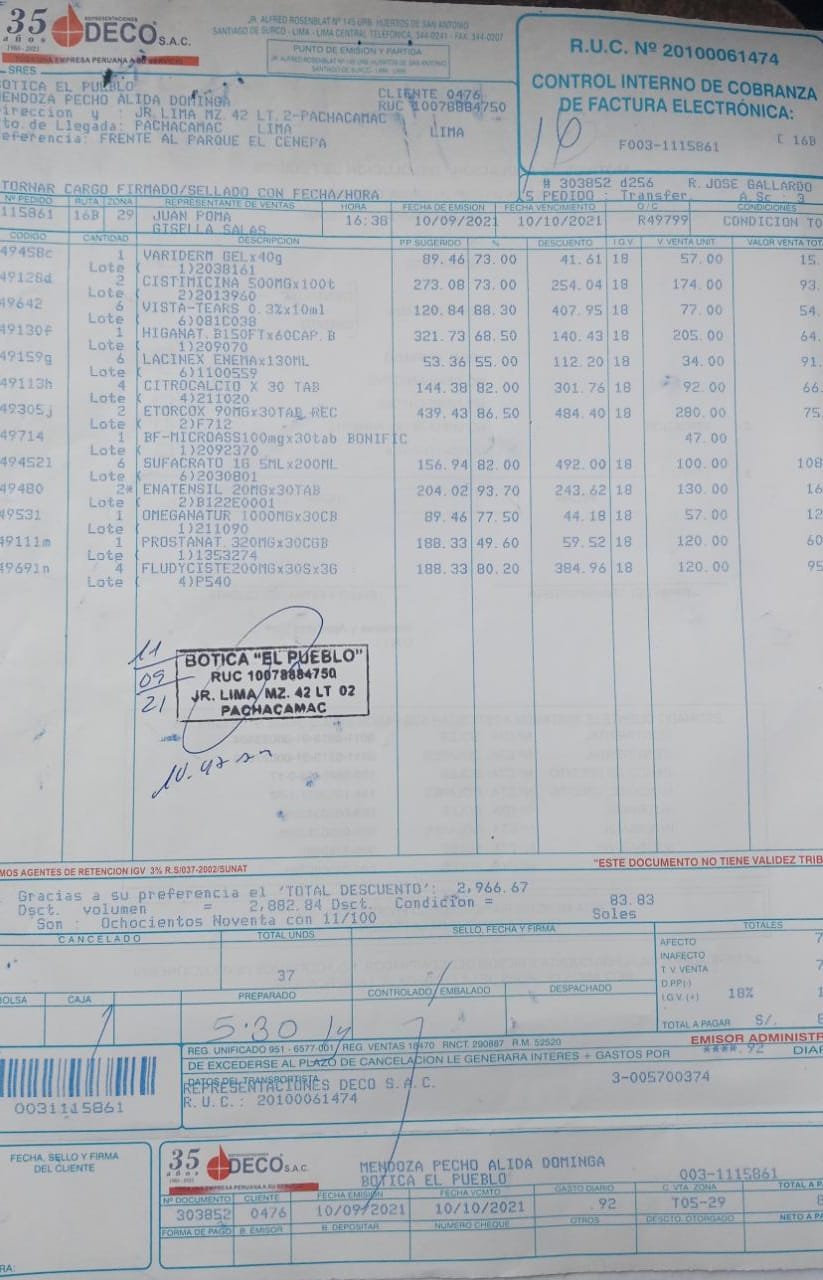 35 años
1986 - 2021
REPRESENTACIONES
DECO S.A.C.
TODA UNA EMPRESA PERUANA A SU SERVICIO
JR. ALFREDO ROSENBLAT Nº 145 URB. HUERTOS DE SAN ANTONIO
SANTIAGO DE SURCO - LIMA - LIMA CENTRAL TELEFÓNICA, 344-0241 - FAX 344-0207
PUNTO DE EMISIÓN Y PARTIDA
R.U.C. Nº 20100061474
CONTROL INTERNO DE COBRANZA
DE FACTURA ELECTRÓNICA:
F003-1115861
16B
SRES
BOTICA EL PUEBLO
MENDOZA PECHO ALIDA DOMINGA
CLIENTE 0476
RUC 10078884750
Direccion y : JR.LIMA MZ.42 LT.2-PACHACAMAC
Pto.de Llegada: PACHACAMAC LIMA LIMA
Referencia: FRENTE AL PARQUE EL CENEPA
TORNAR CARGO FIRMADO/SELLADO CON FECHA/HORA
# 303852 d256 R. JOSE GALLARDO
5 PEDIDO : Transfer. A.Sc 3
Nº PEDIDO RUTA ZONA REPRESENTANTE DE VENTAS HORA FECHA DE EMISION FECHA VENCIMIENTO O / C CONDICIONES
115861 16B 29 JUAN POMA 16:38 10/09/2021 10/10/2021 R49799 CONDICION TO
GISELLA SALAS
CODIGO CANTIDAD DESCRIPCION PP SUGERIDO % DESCUENTO I G V V VENTA UNIT. VALOR VENTA TOT
49458c 1 VARIDERM GELx40g 89.46 73.00 41.61 18 57.00 15.
Lote ( 1)2038161
49128d 2 CISTIMICINA 500MGx100t 273.08 73.00 254.04 18 174.00 93.
Lote ( 2)2013960
49642 6 VISTA-TEARS 0.3%x10ml 120.84 88.30 407.95 18 77.00 54.
Lote ( 6)081C038
49130f 1 HIGANAT.B150FTx60CAP.B 321.73 68.50 140.43 18 205.00 64.
Lote ( 1)209070
49159g 6 LACINEX ENEMAx130ML 53.36 55.00 112.20 18 34.00 91.
Lote ( 6)1100559
49113h 4 CITROCALCIO X 30 TAB 144.38 82.00 301.76 18 92.00 66.
Lote ( 4)211020
49305j 2 ETORCOX 90MGx30TAB REC 439.43 86.50 484.40 18 280.00 75.
Lote ( 2)F712
49714 1 BF-MICROASS100mgx30tab BONIFIC 47.00
Lote ( 1)2092370
494521 6 SUFACRATO 1G 5MLx200ML 156.94 82.00 492.00 18 100.00 108
Lote ( 6)2030801
49480 2* ENATENSIL 20MGx30TAB 204.02 93.70 243.62 18 130.00 16
Lote ( 2)B122E0001
49531 1 OMEGANATUR 1000MGx30CB 89.46 77.50 44.18 18 57.00 12
Lote ( 1)211090
49111m 1 PROSTANAT.320MGx30CGB 188.33 49.60 59.52 18 120.00 60
Lote ( 1)1353274
49691n 4 FLUDYCISTE200MGx30Sx3G 188.33 80.20 384.96 18 120.00 95
Lote ( 4)P540
11
09
21
BOTICA "EL PUEBLO"
RUC 10078884750
JR. LIMA MZ. 42 LT 02
PACHACAMAC
10.47 am
MOS AGENTES DE RETENCION IGV 3% R.S/037-2002/SUNAT
"ESTE DOCUMENTO NO TIENE VALIDEZ TRIB
Gracias a su preferencia el 'TOTAL DESCUENTO': 2,966.67
Dsct. volumen = 2,882.84 Dsct. Condicion = 83.83
Son : Ochocientos Noventa con 11/100 Soles
CANCELADO TOTAL UNDS SELLO, FECHA Y FIRMA TOTALES
37
AFECTO 7
INAFECTO
T V VENTA 7
D.PP(-)
I.G.V.(+) 18% 1
TOTAL A PAGAR S/. 8
BOLSA CAJA PREPARADO CONTROLADO/EMBALADO DESPACHADO
5:30
REG. UNIFICADO 951 - 6577-001 / REG. VENTAS 18470 RNCT. 290887 R.M. 52520
EMISOR ADMINISTR
DE EXCEDERSE AL PLAZO DE CANCELACION LE GENERARA INTERES + GASTOS POR ****.92 DIAR
DATOS DEL TRANSPORTISTA
REPRESENTACIONES DECO S.A.C.
3-005700374
R.U.C.: 20100061474
0031115861
FECHA, SELLO Y FIRMA
DEL CLIENTE
35 años
1986 - 2021
REPRESENTACIONES
DECO S.A.C.
TODA UNA EMPRESA PERUANA A SU SERVICIO
MENDOZA PECHO ALIDA DOMINGA
BOTICA EL PUEBLO
003-1115861
Nº DOCUMENTO CLIENTE FECHA EMISION FECHA VCMTO GASTO DIARIO C. VTA. ZONA TOTAL A PA
303852 0476 10/09/2021 10/10/2021 .92 T05-29 8
FORMA DE PAGO B. EMISOR B. DEPOSITAR NUMERO CHEQUE OTROS DESCTO. OTORGADO NETO A PA
RA: